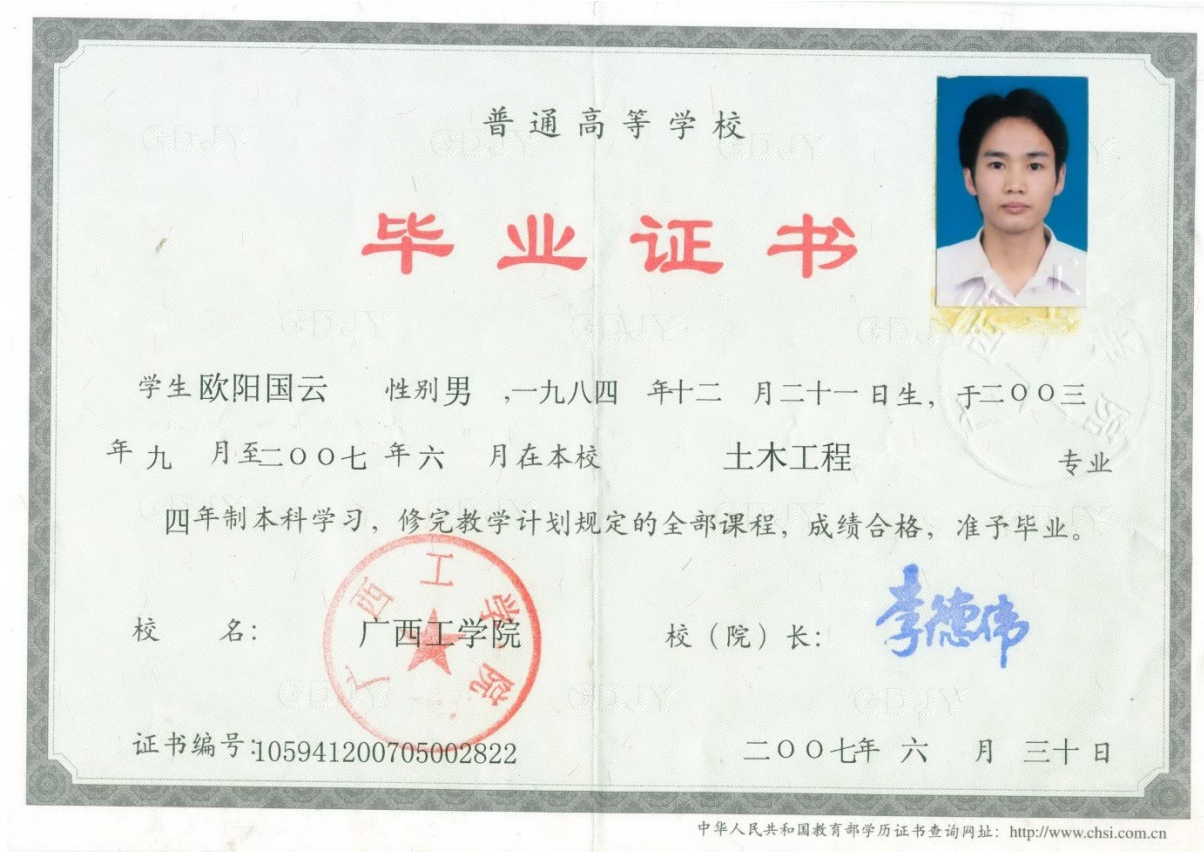 普通高等学校
毕业证书
学生欧阳国云 性别男 ,一九八四 年十二 月二十一日生，于二〇〇三
年九 月至二〇〇七 年六 月在本校 土木工程 专业
四年制本科学习，修完教学计划规定的全部课程，成绩合格，准予毕业。
校 名： 广西工学院 校（院）长： 李德伟
广西工学院
证书编号:105941200705002822 二〇〇七年 六 月 三十日
中华人民共和国教育部学历证书查询网址：http://www.chsi.com.cn